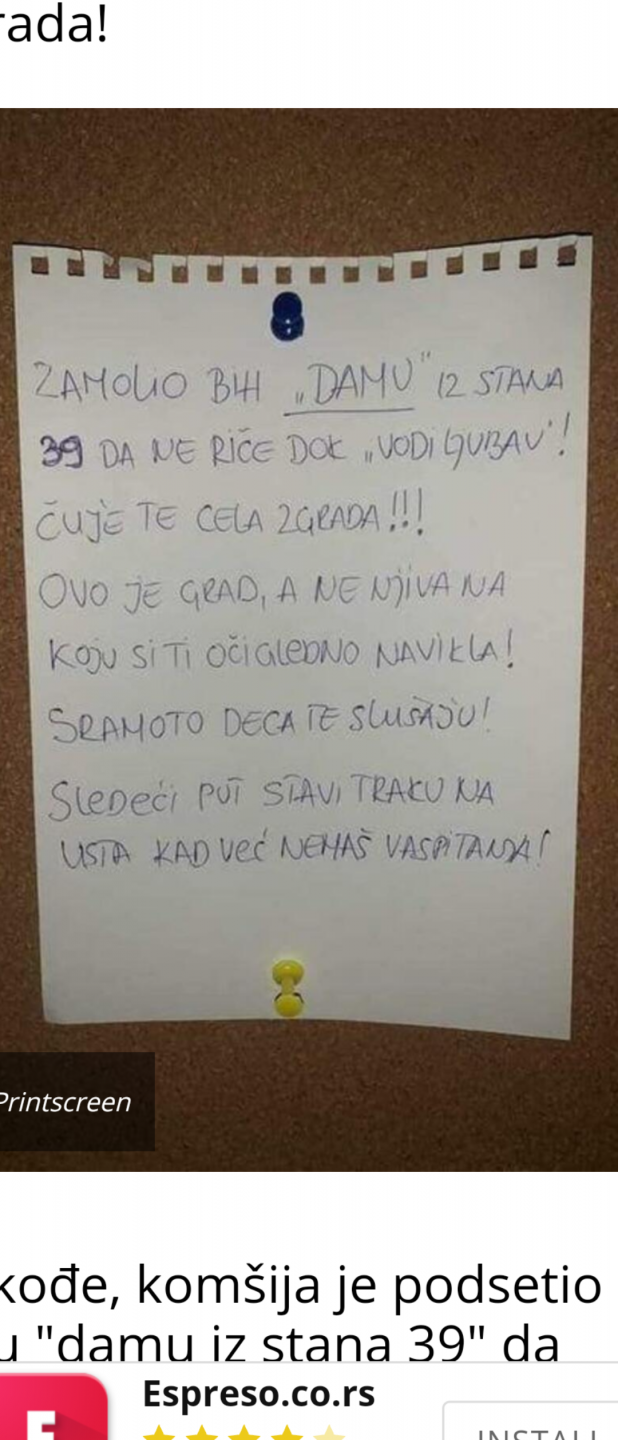 rada!
ZAMOLIO BIH „DAMU" IZ STANA
39 DA NE RIČE DOK „VODI LJUBAV"!
ČUJE TE CELA ZGRADA!!!
OVO JE GRAD, A NE NJIVA NA
KOJU SI TI OČIGLEDNO NAVIKLA!
SRAMOTO DECA TE SLUŠAJU!
SLEDEĆI PUT STAVI TRAKU NA
USTA KAD VEĆ NEMAŠ VASPITANJA!
Printscreen
kođe, komšija je podsetio
u "damu iz stana 39" da
Espreso.co.rs
INSTALL